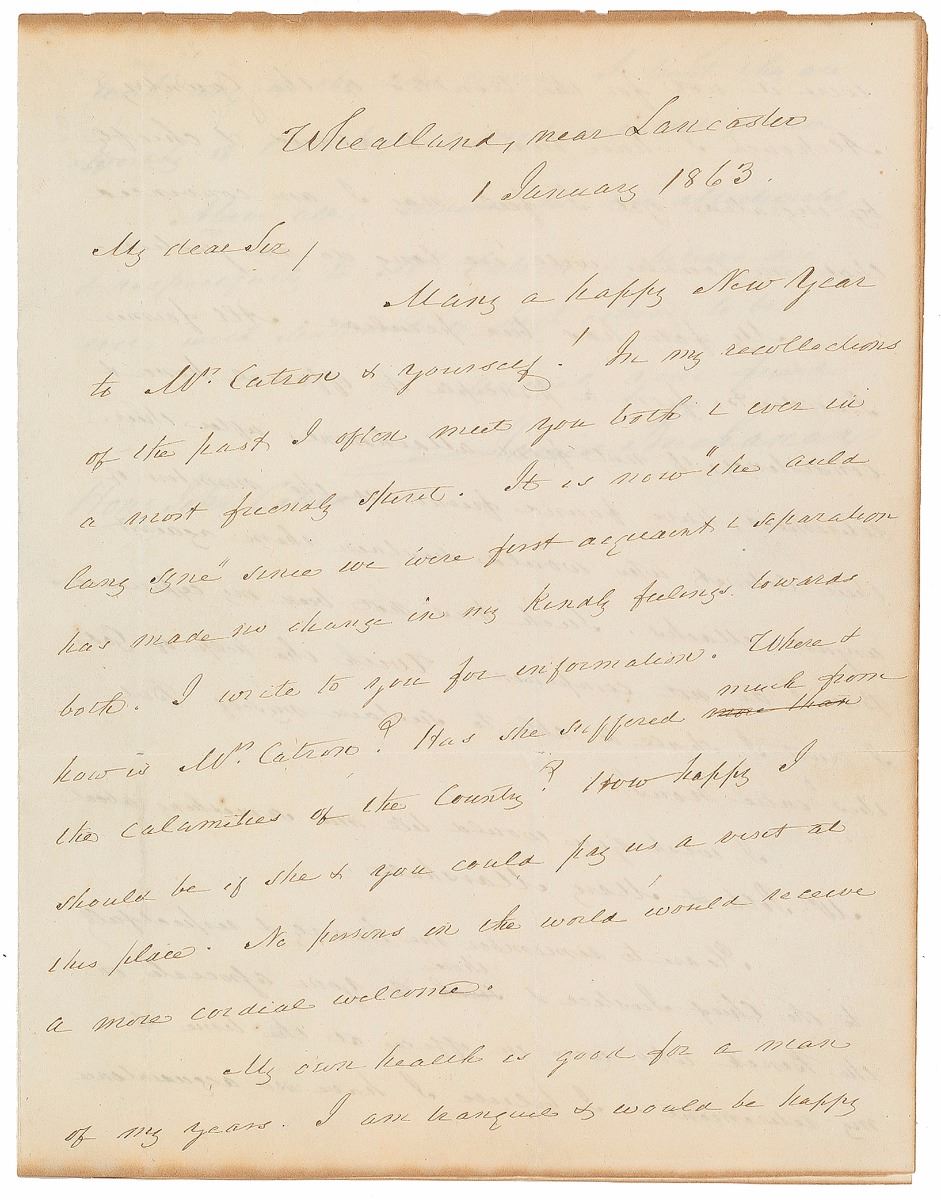 Wheatland, near Lancaster
1 January 1863.
My dear Sir,
Many a happy New Year
to Mrs. Catron & yourself! In my recollections
of the past I often meet you both & ever in
a most friendly spirit. It is now "the auld
lang syne" since we were first acquaint & separation
has made no change in my kindly feelings towards
both. I write to you for information. Where &
how is Mrs. Catron? Has she suffered more than much from
the calamities of the Country? How happy I
should be if she & you could pay us a visit at
this place. No persons in the world would receive
a more cordial welcome.
My own health is good for a man
of my years. I am tranquil & would be happy